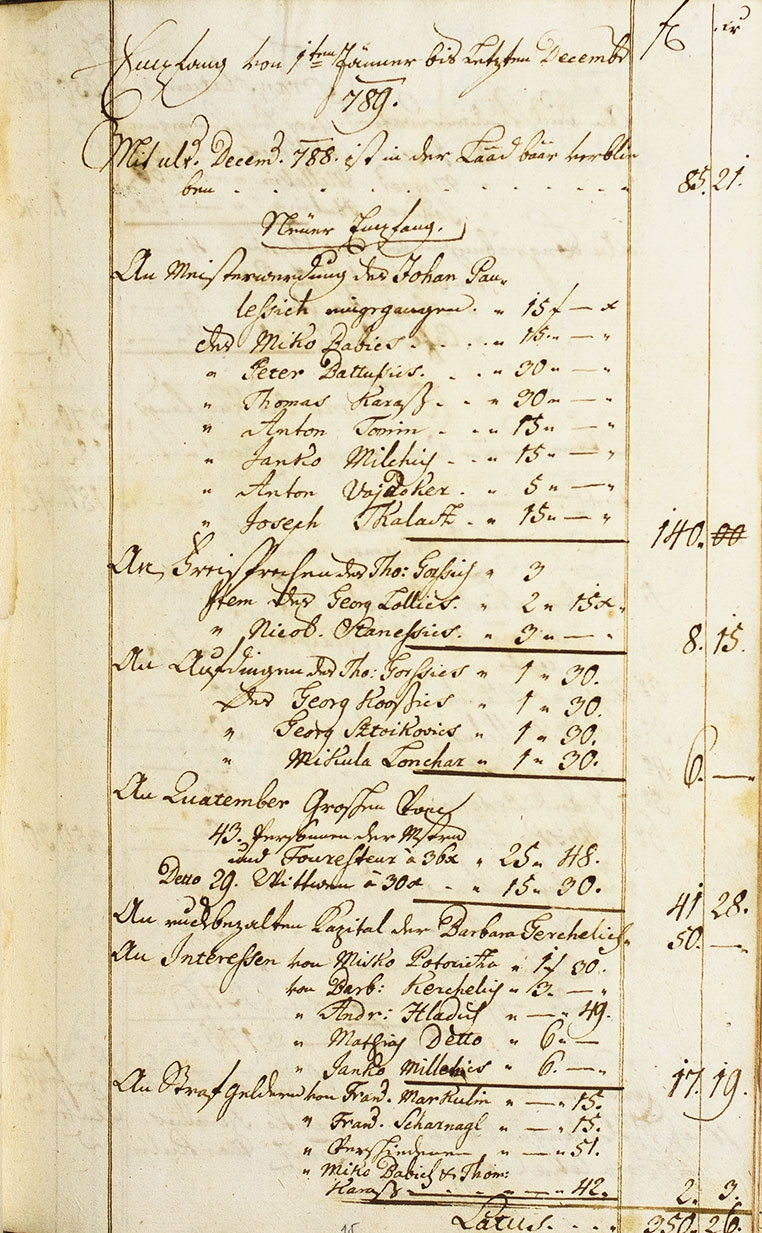 f xr
Empfang von 1ten Jänner bis Letzten Decembr
789.
Mit ult. Decemb. 788. ist in der Laad baar verblie
ben - - - - 85. 21.
Neuer Empfang.
An Meisterwerdung des Johan Pau-
lessich eingegangen. " 15 f — x
des Miko Babics - - " 15 " — "
" Peter Battussics. - " 30 " — "
" Thomas Karaß - - " 30 " — "
" Anton Tomin - - " 15 " — "
" Janko Milchich - - " 15 " — "
" Anton Vajdoker - " 5 " — "
" Joseph Skalack - " 15 " — " 140. 00
An Freisprechen des Tho: Gorssich " 3
Item des Georg Lollics. " 2 " 15 x "
" Nicol. Stanessics. " 3 " — " 8. 15.
An Aufdingen des Tho: Gorssics " 1 " 30.
des Georg Koossics " 1 " 30.
" Georg Sztoikovics " 1 " 30.
" Mikula Lonchar " 1 " 30. 6. —
An Quatember Groschen von
43. Personnen der Mstrn
und " 36x " 25 " 48.
Detto 29. Wittwen à 30x - " 15 " 30. 41 28.
An rückbezalten Kapital der Barbara Gerchelich " 50. —
An Interessen von Misko " 1 f 30.
von Barb: Kerchelich " 3. — "
" Andr: Hladich " — " 49.
" Mathias Detto " 6 " —
" Janko Millchics " 6. — " 17. 19.
An Straf Geldern von Franz. Markulin " — " 15.
" Franz. Scharnagl " — " 15.
" Verschiedenen " — " 51.
" Miko Babich & Thom:
Karaß - - - — " 42. 2. 3.
Latus. - - 350. 26.